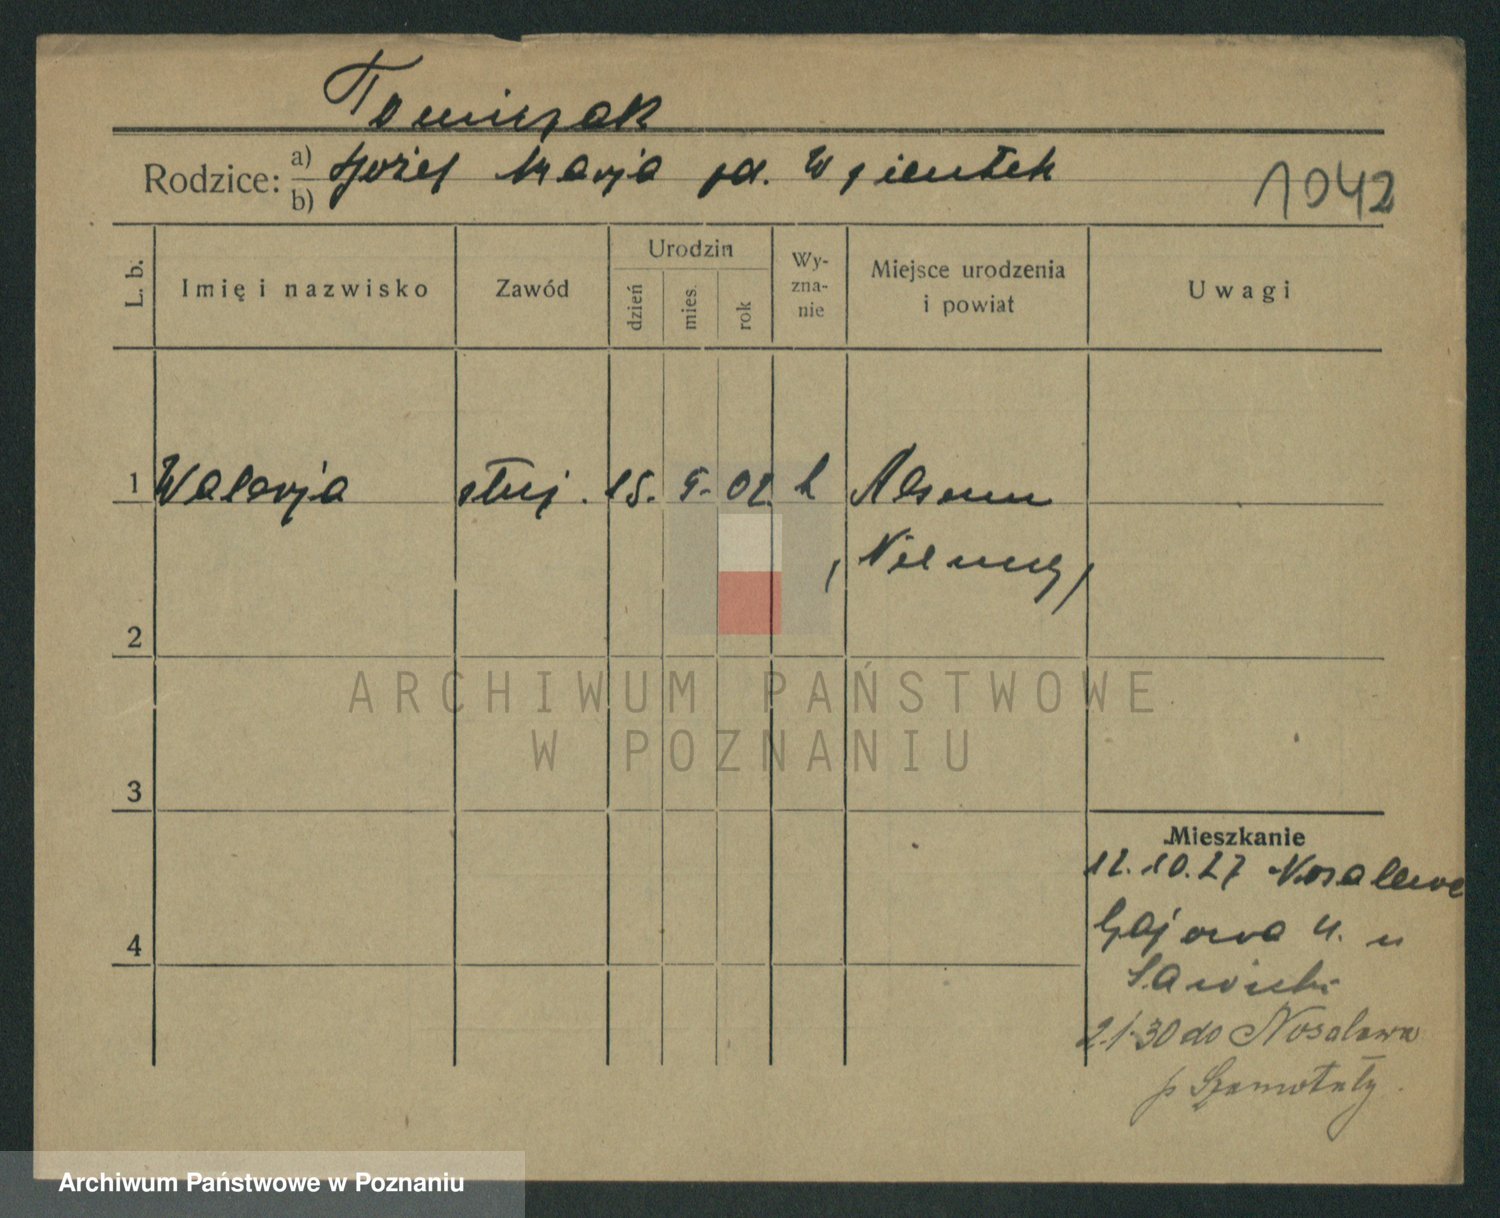 Tomczak
Rodzice: a) Józef Marja
b)
1042
L. b.
Imię i nazwisko
Zawód
Urodzin
dzień
mies.
rok
Wy-
zna-
nie
Miejsce urodzenia
i powiat
Uwagi
1 Walerja służ. 15. 9. 02. k
Niemcy)
2
ARCHIWUM PAŃSTWOWE
W POZNANIU
3
Mieszkanie
12.10.27
Gajowa 4. u
4
Sawicki
2.1.30 do Nosalewa
p Szamotuły.
Archiwum Państwowe w Poznaniu